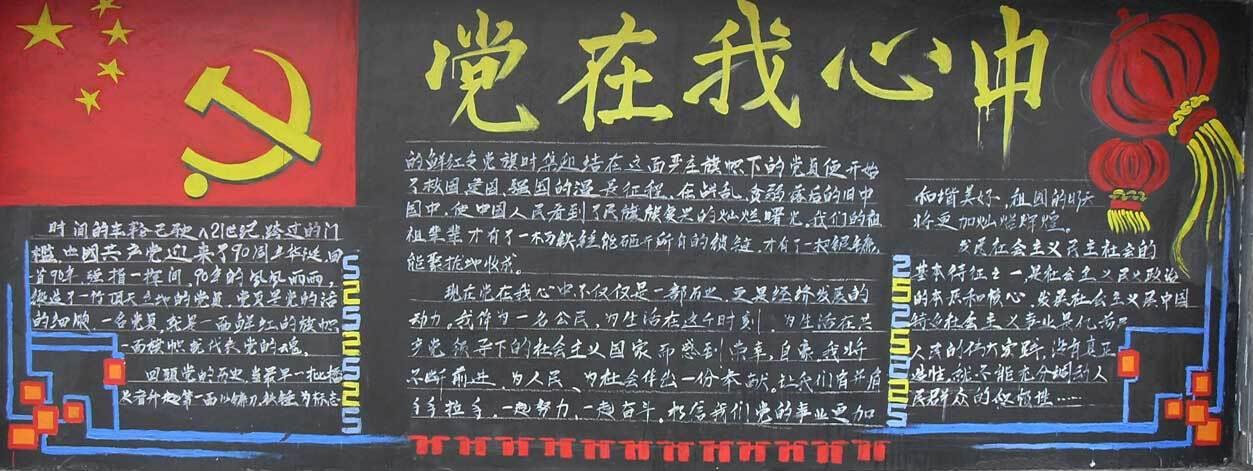 党在我心中
时间的车轮已驶入21世纪,跨过的门
槛中国共产党迎来了90周年华诞,回
首90年,弹指一挥间,90年的风风雨雨,
造就了一代顶天立地的党员,党员是党的活
的细胞,一名党员,就是一面鲜红的旗帜
一面旗帜就代表党的魂。
回眸党的历史,当最早一批
第一面以镰刀、铁锤为标志
的鲜红色党旗时集起结在这面严主旗帜下的党员便开始
了救国、建国、强国的漫长征程。在战乱、贫弱落后的旧中
国中,使中国人民看到了民族能复兴的灿烂曙光。我们的祖
祖辈辈才有了一柄铁锤能砸开所有的锁链,才有了一把镰
能聚拢地收获。
现在党在我心中不仅仅是一部历史,更是经济发展的
动力。我作为一名公民,为生活在这个时刻,为生活在共
产党领导下的社会主义国家而感到荣幸,自豪,我将
不断前进,为人民、为社会作出一份奉献。让我们肩并肩
手拉手,一起努力,一起奋斗,相信我们党的事业更加
和谐美好,祖国的明天
将更加灿烂辉煌。
发展社会主义民主社会的
基本特征之一,是社会主义民主政治
的本质和核心,发展社会主义是中国
特色社会主义事业是亿万
人民的伟大实践,没有真正
性,就不能充分调动人
民群众的积极性……